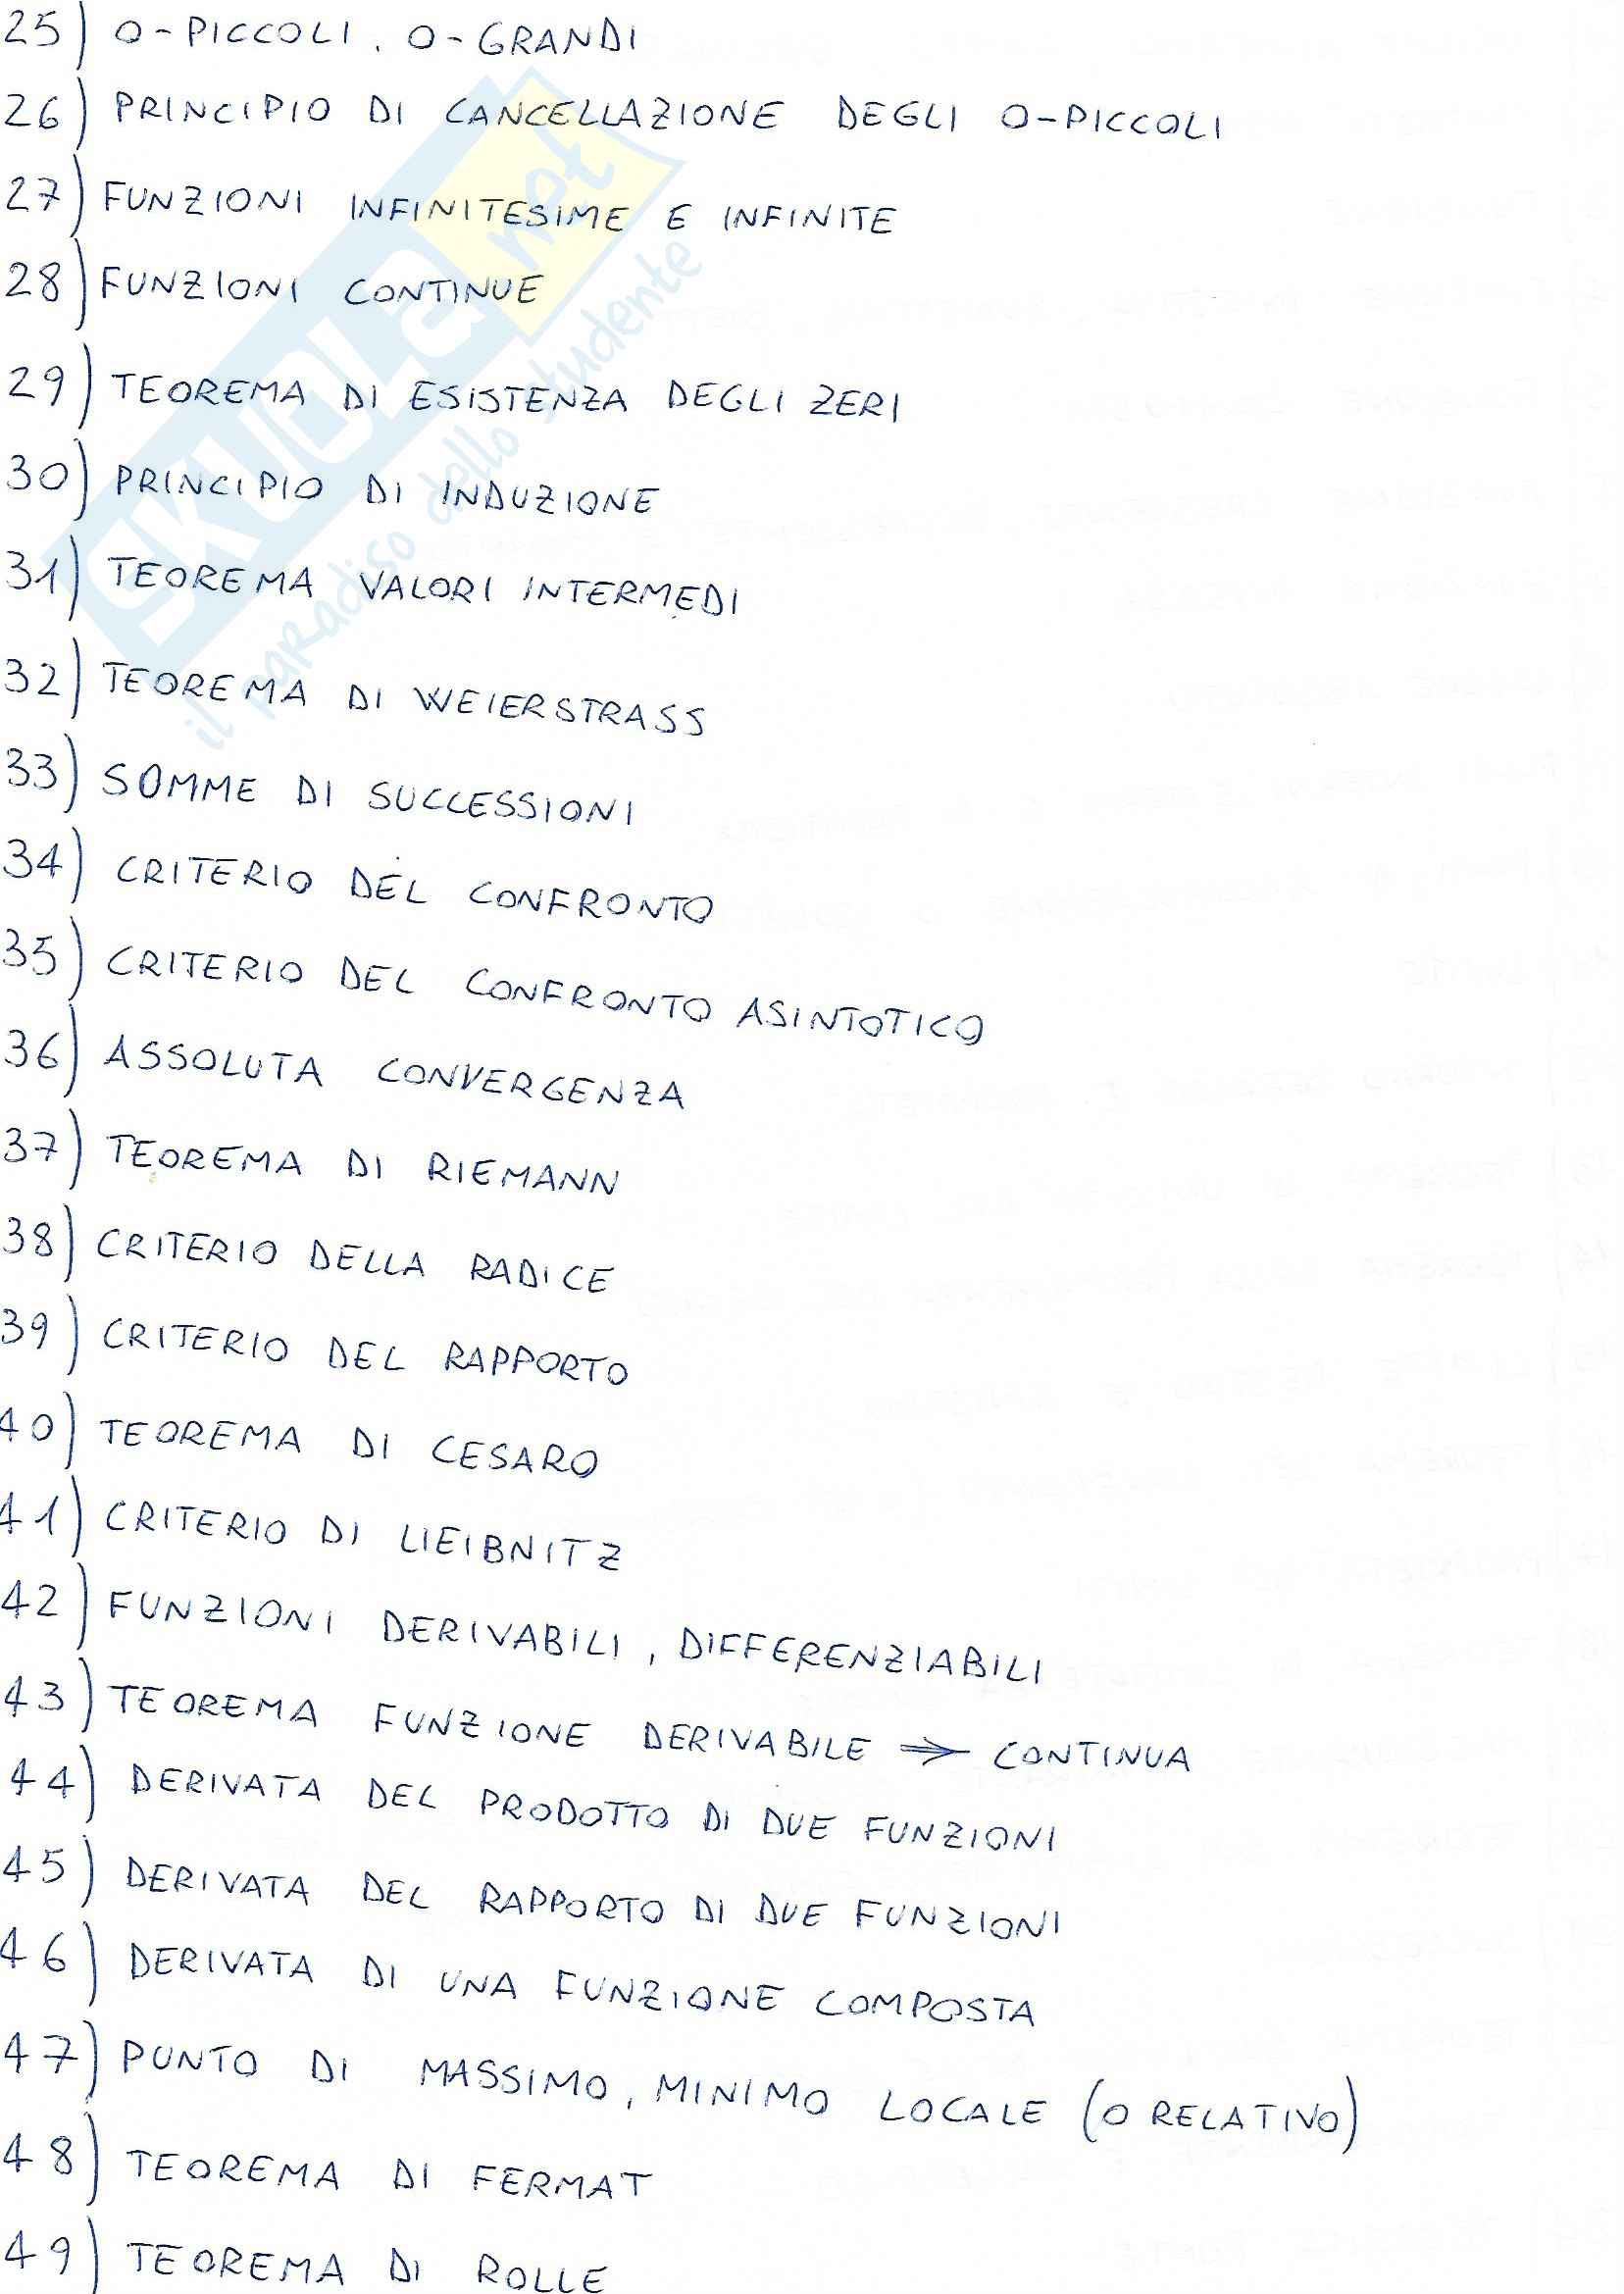 25) O-PICCOLI, O-GRANDI
26) PRINCIPIO DI CANCELLAZIONE DEGLI O-PICCOLI
27) FUNZIONI INFINITESIME E INFINITE
28) FUNZIONI CONTINUE
29) TEOREMA DI ESISTENZA DEGLI ZERI
30) PRINCIPIO DI INDUZIONE
31) TEOREMA VALORI INTERMEDI
32) TEOREMA DI WEIERSTRASS
33) SOMME DI SUCCESSIONI
34) CRITERIO DEL CONFRONTO
35) CRITERIO DEL CONFRONTO ASINTOTICO
36) ASSOLUTA CONVERGENZA
37) TEOREMA DI RIEMANN
38) CRITERIO DELLA RADICE
39) CRITERIO DEL RAPPORTO
40) TEOREMA DI CESARO
41) CRITERIO DI LIEIBNITZ
42) FUNZIONI DERIVABILI, DIFFERENZIABILI
43) TEOREMA FUNZIONE DERIVABILE ⇒ CONTINUA
44) DERIVATA DEL PRODOTTO DI DUE FUNZIONI
45) DERIVATA DEL RAPPORTO DI DUE FUNZIONI
46) DERIVATA DI UNA FUNZIONE COMPOSTA
47) PUNTO DI MASSIMO, MINIMO LOCALE (O RELATIVO)
48) TEOREMA DI FERMAT
49) TEOREMA DI ROLLE
SKUOLA.net
il paradiso dello studente